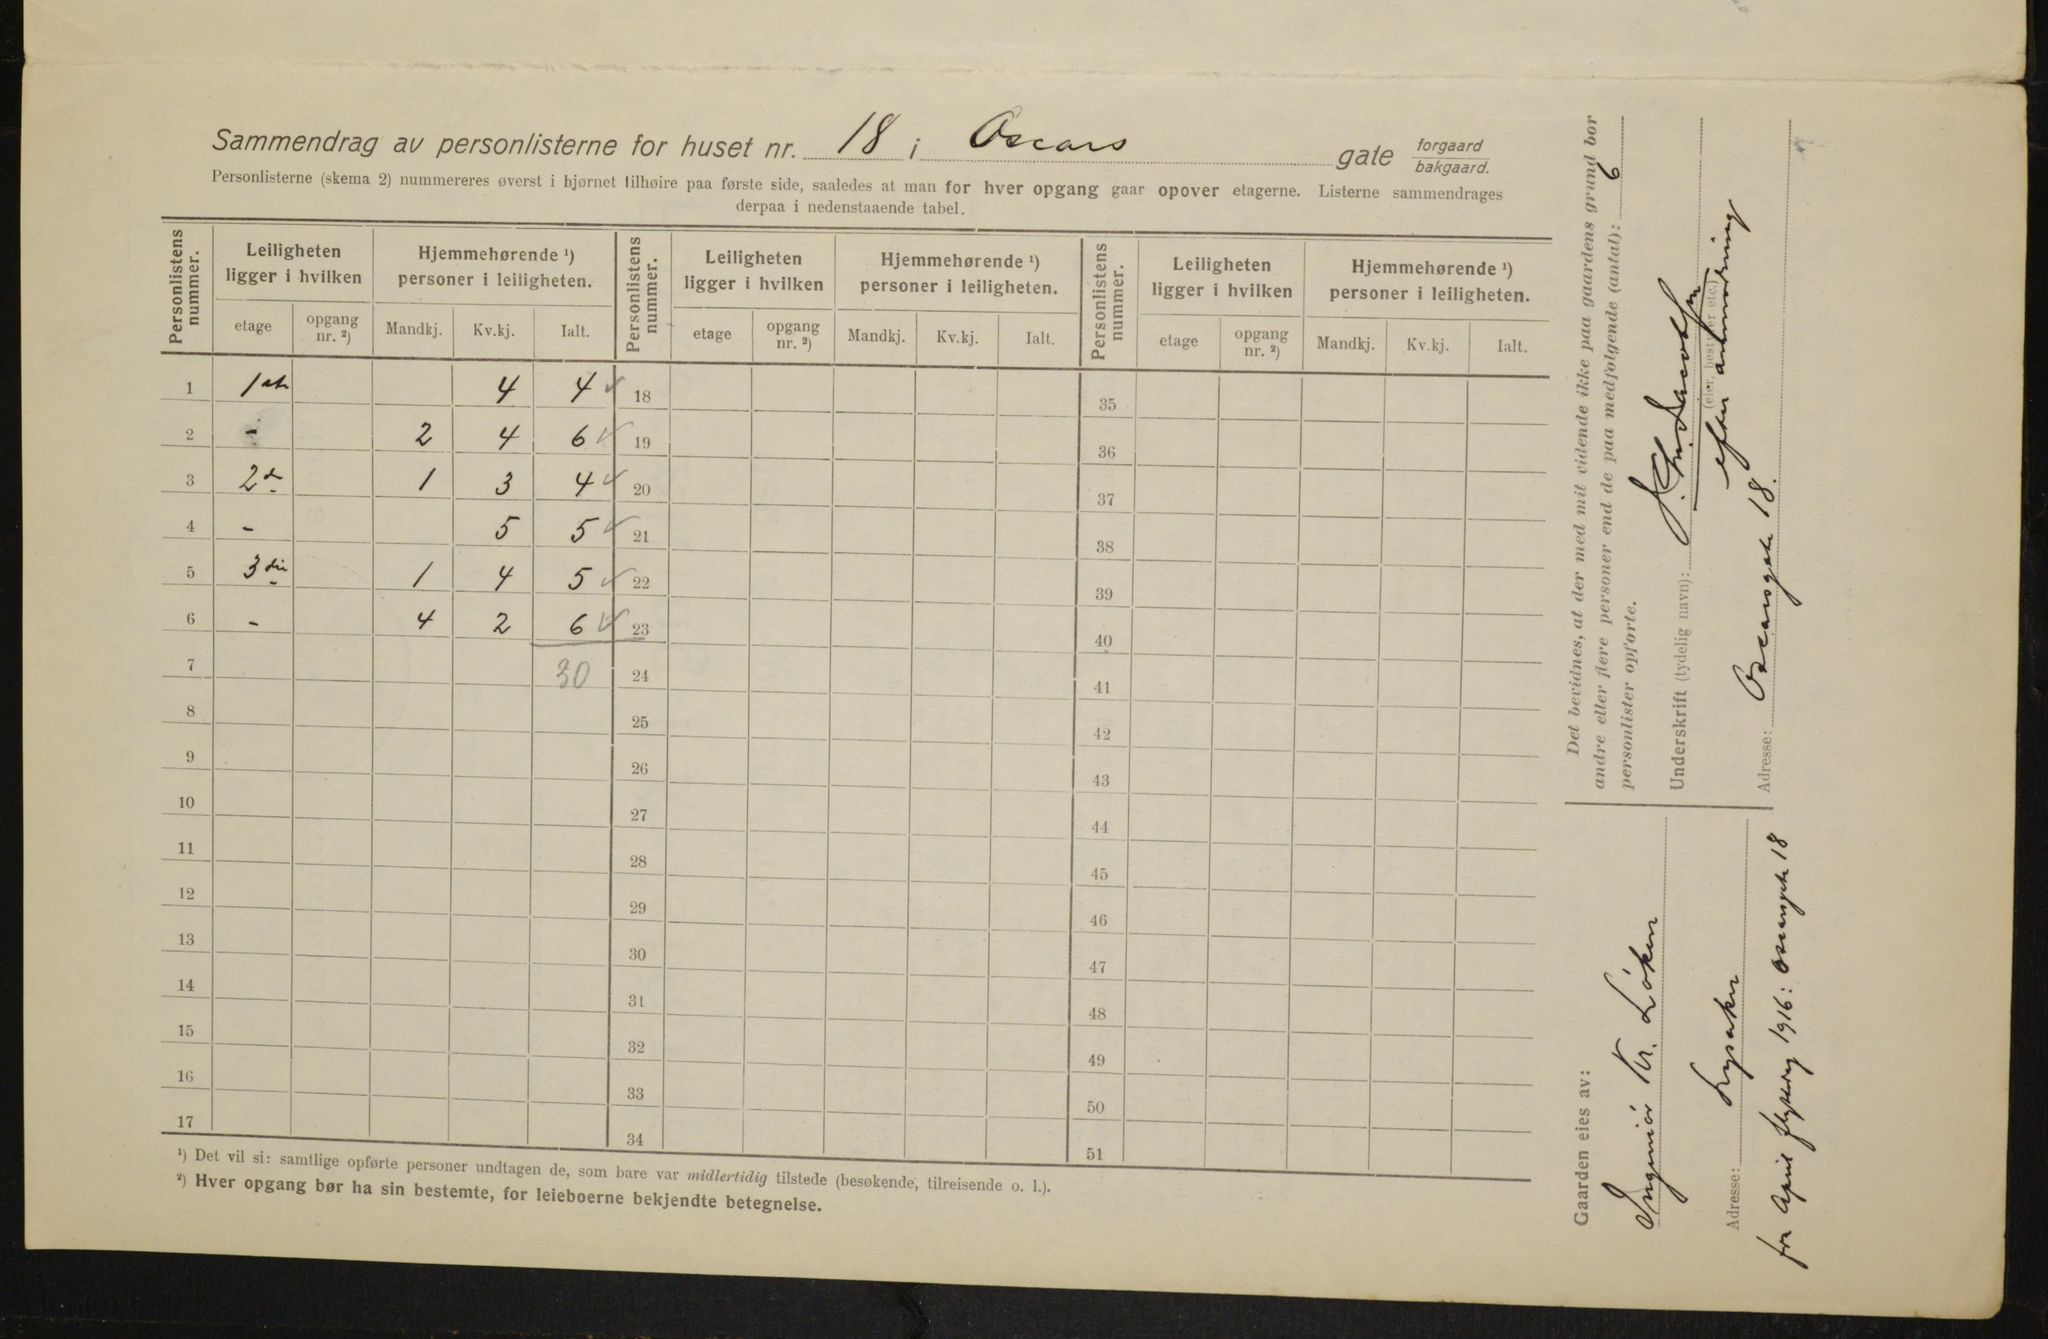 Sammendrag av personlisterne for huset nr. 18 i Oscars gate forgaard
bakgaard.
Personlisterne (skema 2) nummereres øverst i hjørnet tilhøire paa første side, saaledes at man for hver opgang gaar opover etagerne. Listerne sammendrages
derpaa i nedenstaaende tabel.
Personlistens nummer. Leiligheten ligger i hvilken Hjemmehørende ¹) personer i leiligheten. Personlistens nummer. Leiligheten ligger i hvilken Hjemmehørende ¹) personer i leiligheten. Personlistens nummer. Leiligheten ligger i hvilken Hjemmehørende ¹) personer i leiligheten.
etage opgang nr. ²) Mandkj. Kv.kj. Ialt. etage opgang nr. ²) Mandkj. Kv.kj. Ialt. etage opgang nr. ²) Mandkj. Kv.kj. Ialt.
1 1ste 4 4 ✓ 18 35
2 - 2 4 6 ✓ 19 36
3 2den 1 3 4 ✓ 20 37
4 - 5 5 ✓ 21 38
5 3die 1 4 5 ✓ 22 39
6 - 4 2 6 ✓ 23 40
7 30 24 41
8 25 42
9 26 43
10 27 44
11 28 45
12 29 46
13 30 47
14 31 48
15 32 49
16 33 50
17 34 51
¹) Det vil si: samtlige opførte personer undtagen de, som bare var midlertidig tilstede (besøkende, tilreisende o. l.).
²) Hver opgang bør ha sin bestemte, for leieboerne bekjendte betegnelse.
Det bevidnes, at der med mit vidende ikke paa gaardens grund bor
andre eller flere personer end de paa medfølgende (antal): 6
personlister opførte.
Underskrift (tydelig navn): Jacobsen
(eier, bestyrer etc.)
efter anmodning
Adresse: Oscarsgate 18.
Gaarden eies av:
Ingeniør Kr. Løken
Adresse: Lysaker
fra April flytning 1916: Oscarsgate 18